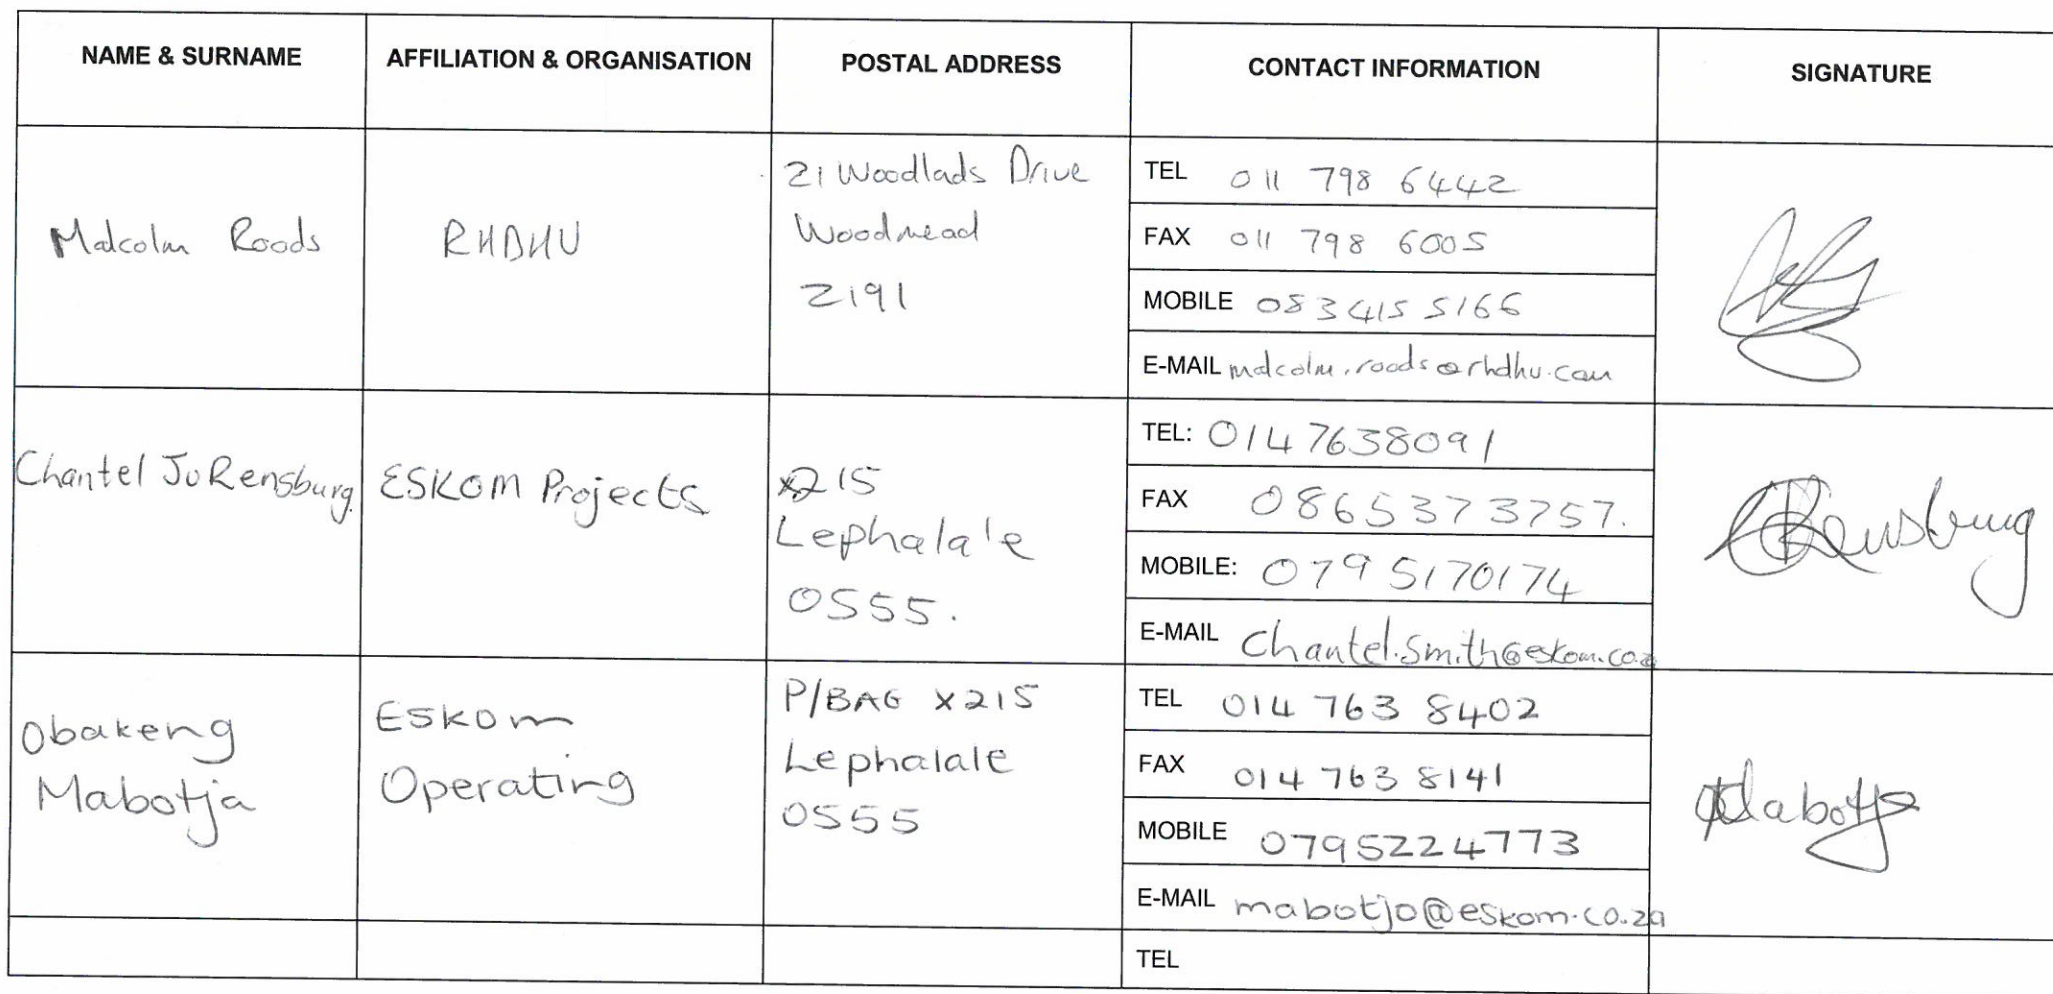 NAME & SURNAME AFFILIATION & ORGANISATION POSTAL ADDRESS CONTACT INFORMATION SIGNATURE
Malcolm Roods
RHDHV
21 Woodlads Drive
Woodmead
2191
TEL 011 798 6442
FAX 011 798 6005
MOBILE 083 415 5166
E-MAIL malcolm.roods@rhdhv.com
Chantel JvRensburg.
ESKOM Projects
x215
Lephalale
0555.
TEL: 0147638091
FAX 0865373757.
MOBILE: 0795170174
E-MAIL Chantel.Smith@eskom.co.z
Rensburg
Obakeng
Mabotja
Eskom
Operating
P/BAG X215
Lephalale
0555
TEL 014 763 8402
FAX 014 763 8141
MOBILE 0795224773
E-MAIL mabotjo@eskom.co.za
Mabotja
TEL